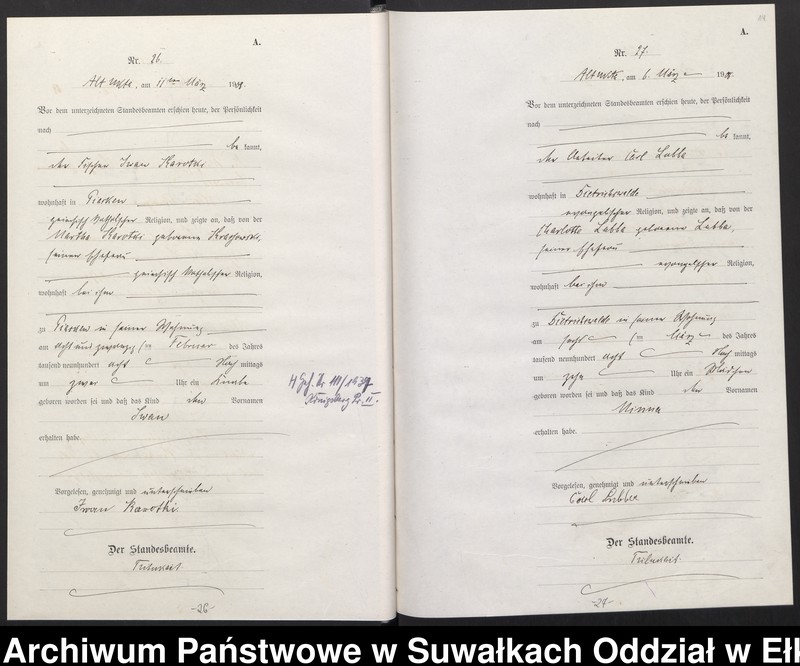 A.
Nr. 26.
am 11ten März 1908.
Vor dem unterzeichneten Standesbeamten erschien heute, der Persönlichkeit
nach
be kannt,
der Fischer Iwan Karotki
wohnhaft in
griechisch katholischer Religion, und zeigte an, daß von der
Martha Karotki geborene
seiner Ehefrau
griechisch katholischer Religion,
wohnhaft bei ihm
zu in seiner Wohnung
am acht und zwanzigsten Februar des Jahres
tausend neunhundert acht Nach mittags
um zwei Uhr ein Knabe
geboren worden sei und daß das Kind den Vornamen
Iwan
erhalten habe.
Vorgelesen, genehmigt und unterschrieben
Iwan Karotki
Der Standesbeamte.
-26-
Königsberg Pr. II.
A.
Nr. 27.
am 6. März 1908.
Vor dem unterzeichneten Standesbeamten erschien heute, der Persönlichkeit
nach
be kannt,
der Arbeiter Carl Lubba
wohnhaft in Dietrichswalde
evangelischer Religion, und zeigte an, daß von der
Charlotte Lubba geborene Lubba,
seiner Ehefrau
evangelischer Religion,
wohnhaft bei ihm
zu Dietrichswalde in seiner Wohnung
am März des Jahres
tausend neunhundert acht Nach mittags
um zehn Uhr ein Mädchen
geboren worden sei und daß das Kind den Vornamen
Minna
erhalten habe.
Vorgelesen, genehmigt und unterschrieben
Carl Lubba
Der Standesbeamte.
-27-
Archiwum Państwowe w Suwałkach Oddział w Eł